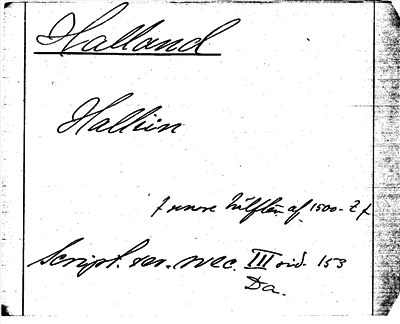 Halland
Hallin
senare hälften af 1500-t.
Script. rer. svec. III sid. 153
Da.